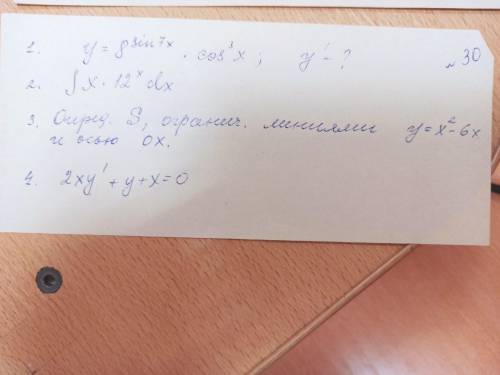 1. y = 8^{sin 7x} · cos³x ; y' - ?
№ 30
2. ∫ x · 12^x dx
3. Опред. S, огранич. линиями y = x² - 6x
и осью Ox.
4. 2xy' + y + x = 0